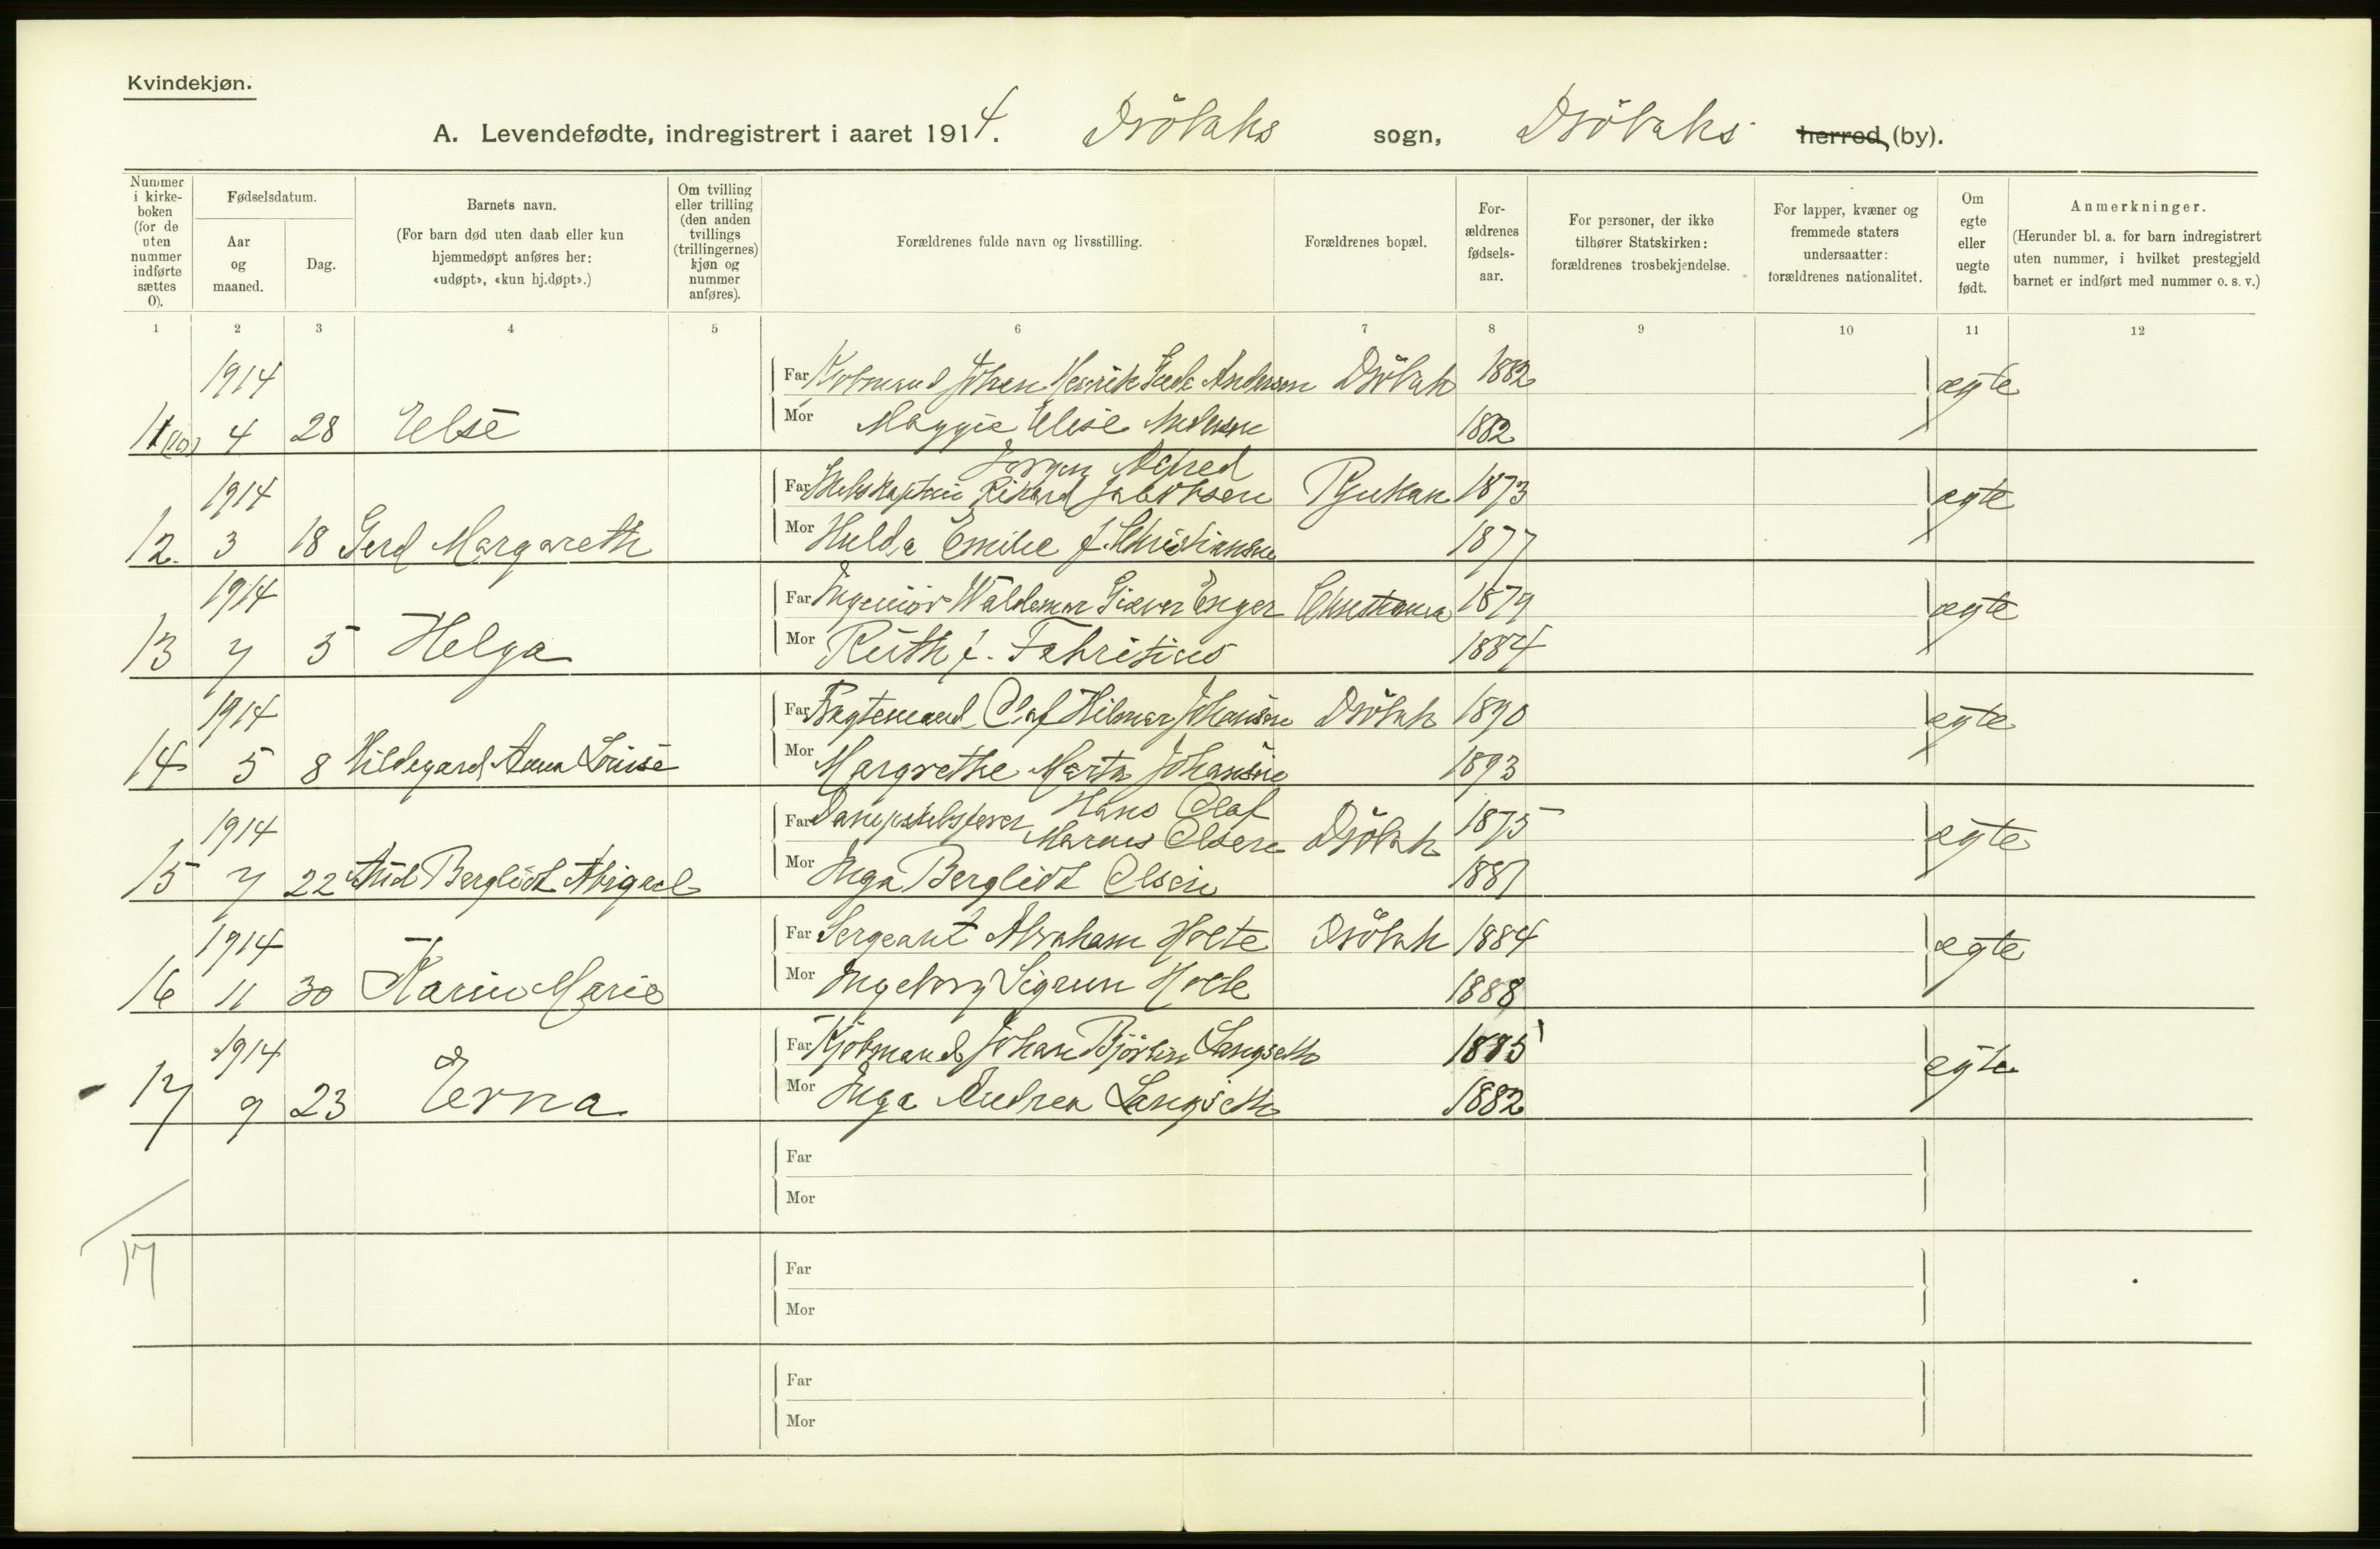 Kvindekjøn.
A. Levendefødte, indregistrert i aaret 1914. Drøbaks sogn, Drøbaks herred (by).
Nummer i kirke-boken (for de uten nummer indførte sættes 0).
Fødselsdatum.
Aar og maaned.
Dag.
Barnets navn.
(For barn død uten daab eller kun hjemmedøpt anføres her: «udøpt», «kun hj.døpt».)
Om tvilling eller trilling (den anden tvillings (trillingernes) kjøn og nummer anføres).
Forældrenes fulde navn og livsstilling.
Forældrenes bopæl.
For-ældrenes fødsels-aar.
For personer, der ikke tilhører Statskirken: forældrenes trosbekjendelse.
For lapper, kvæner og fremmede staters undersaatter: forældrenes nationalitet.
Om egte eller uegte født.
Anmerkninger.
(Herunder bl. a. for barn indregistrert uten nummer, i hvilket prestegjeld barnet er indført med nummer o. s. v.)
1 2 3 4 5 6 7 8 9 10 11 12
1914 Far Johan Henrik Andersen Drøbak 1882 ægte
11 (10) 4 28 Else Mor Maggie Elise Andersen 1882
Jørgen Alfred
1914 Far Rikard Jakobsen Rjukan 1873 egte
12. 3 18 Gerd Margareth Mor Hulda Emilie f. Christiansen 1877
1914 Far Ingeniør Waldemar Siever Enger Christiania 1879 egte
13 7 5 Helga Mor Ruth f. Fabritius 1884
1914 Far Fragtemand Olaf Hilmar Johansen Drøbak 1890 egte
14 5 8 Hildegard Anna Louise Mor Margrethe Marta Johansen 1893
Hans Olaf
1914 Far Marius Olsen Drøbak 1875 egte
15 7 22 Aud Bergliot Abigael Mor Inga Bergliot Olsen 1881
1914 Far Sergeant Abraham Holte Drøbak 1884 egte
16 11 30 Karin Marie Mor Ingeborg Sigrun Holte 1888
1914 Far Kjøbmand Johan Bjørn Langseth 1885 egte
17 9 23 Erna Mor Inga Andrea Langseth 1882
Far
Mor
17
Far
Mor
Far
Mor